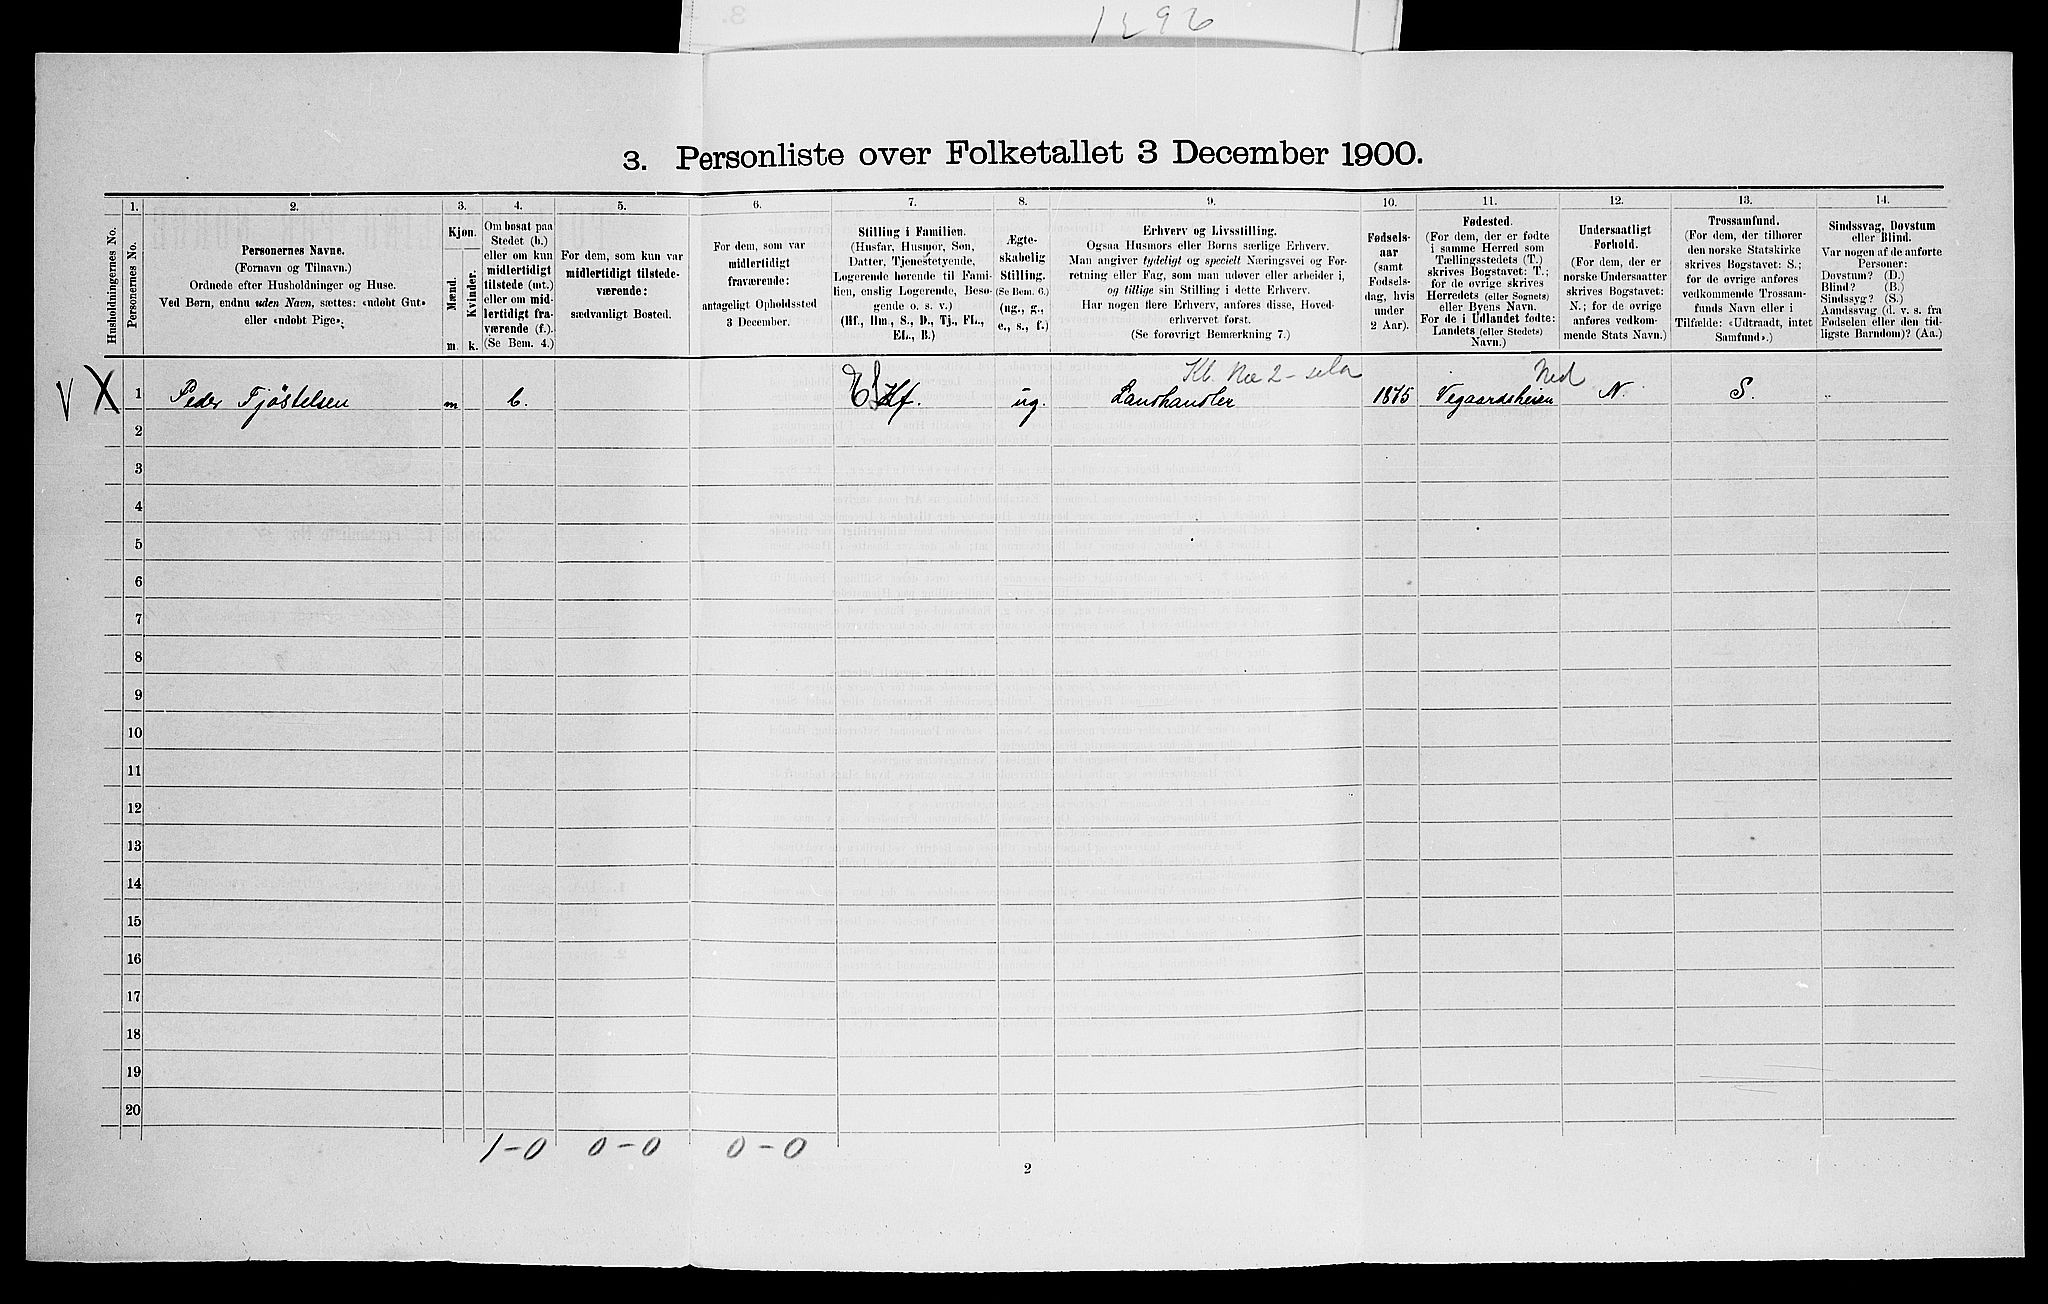 1296
3. Personliste over Folketallet 3 December 1900.
Husholdningernes No.
1.
Personernes No.
2.
Personernes Navne.
(Fornavn og Tilnavn.)
Ordnede efter Husholdninger og Huse.
Ved Børn, endnu uden Navn, sættes: «udøbt Gut»
eller «udøbt Pige».
3.
Kjøn.
Mænd.
Kvinder.
m. k.
4.
Om bosat paa
Stedet (b.)
eller om kun
midlertidigt
tilstede (mt.)
eller om mid-
lertidigt fra-
værende (f.).
(Se Bem. 4.)
5.
For dem, som kun var
midlertidigt tilstede-
værende:
sædvanligt Bosted.
6.
For dem, som var
midlertidigt
fraværende:
antageligt Opholdssted
3 December.
7.
Stilling i Familien.
(Husfar, Husmor, Søn,
Datter, Tjenestetyende,
Logerende hørende til Fami-
lien, enslig Logerende, Besø-
gende o. s. v.)
(Hf., Hm., S., D., Tj., FL.,
EL., B.)
8.
Ægte-
skabelig
Stilling.
(Se Bem. 6.)
(ug., g.,
e., s., f.)
9.
Erhverv og Livsstilling.
Ogsaa Husmors eller Børns særlige Erhverv.
Man angiver tydeligt og specielt Næringsvei og For-
retning eller Fag, som man udøver eller arbeider i,
og tillige sin Stilling i dette Erhverv.
Har nogen flere Erhverv, anføres disse, Hoved-
erhvervet først.
(Se forøvrigt Bemærkning 7.)
10.
Fødsels-
aar
(samt
Fødsels-
dag, hvis
under
2 Aar).
11.
Fødested.
(For dem, der er fødte
i samme Herred som
Tællingsstedets (T.)
skrives Bogstavet: T.;
for de øvrige skrives
Herredets (eller Sognets)
eller Byens Navn.
For de i Udlandet fødte:
Landets (eller Stedets)
Navn.)
12.
Undersaatligt
Forhold.
(For dem, der er
norske Undersaatter
skrives Bogstavet:
N.; for de øvrige
anføres vedkom-
mende Stats Navn.)
13.
Trossamfund.
(For dem, der tilhører
den norske Statskirke
skrives Bogstavet: S.;
for de øvrige anføres
vedkommende Trossam-
funds Navn eller i
Tilfælde: «Udtraadt, intet
Samfund».)
14.
Sindssvag, Døvstum
eller Blind.
Var nogen af de anførte
Personer:
Døvstum? (D.)
Blind? (B.)
Sindssyg? (S.)
Aandssvag (d. v. s. fra
Fødselen eller den tid-
ligste Barndom)? (Aa.)
V X 1 Peder Fjøstelsen m b. Hf. ug. Landhandler 1875 Vegaardsheien N. S.
2
3
4
5
6
7
8
9
10
11
12
13
14
15
16
17
18
19
20
1-0 0-0 0-0
2